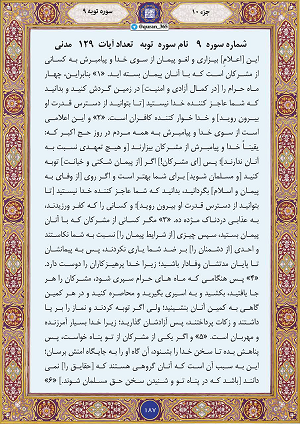 جزء ۱۰
@quran_365
سوره توبه ۹
شماره سوره ۹ نام سوره توبه تعداد آیات ۱۲۹ مدنی
این [اعلام] بیزاری و لغو پیمان از سوی خدا و پیامبرش به کسانی
از مشرکان است که با آنان پیمان بسته اید. «۱» بنابراین، چهار
ماه حرام را [در کمال آزادی و امنیت] در زمین گردش کنید و بدانید
که شما عاجز کننده خدا نیستید [تا بتوانید از دسترس قدرت او
بیرون روید] و خدا خوار کننده کافران است. «۲» و این اعلامی
است از سوی خدا و پیامبرش به همه مردم در روز حج اکبر که:
یقیناً خدا و پیامبرش از مشرکان بیزارند [و هیچ تعهدی نسبت به
آنان ندارند]؛ پس [ای مشرکان!] اگر [از پیمان شکنی و خیانت] توبه
کنید [و مسلمان شوید] برای شما بهتر است و اگر روی [از وفای به
پیمان و اسلام] بگردانید، بدانید که شما عاجز کننده خدا نیستید [تا
بتوانید از دسترس قدرت او بیرون روید]؛ و کسانی را که کفر ورزیدند،
به عذابی دردناک مژده ده. «۳» مگر کسانی از مشرکان که با آنان
پیمان بستید، سپس چیزی [از شرایط پیمان را] نسبت به شما نکاستند
و احدی [از دشمنان را] بر ضد شما یاری نکردند، پس به پیمانشان
تا پایان مدتشان وفادار باشید؛ زیرا خدا پرهیزکاران را دوست دارد.
«۴» پس هنگامی که ماه های حرام سپری شود، مشرکان را هر
جا یافتید، بکشید و به اسیری بگیرید و محاصره کنید و در هر کمین
گاهی به کمین آنان بنشینید؛ ولی اگر توبه کردند و نماز را بر پا
داشتند و زکات پرداختند، پس آزادشان گذارید؛ زیرا خدا بسیار آمرزنده
و مهربان است. «۵» و اگر یکی از مشرکان از تو پناه خواست، پس
پناهش بده تا سخن خدا را بشنود، آن گاه او را به جایگاه امنش برسان؛
این به سبب آن است که آنان گروهی هستند که [حقایق را] نمی
دانند [باشد که در پناه تو و شنیدن سخن حق مسلمان شوند.] «۶»
۱۸۷